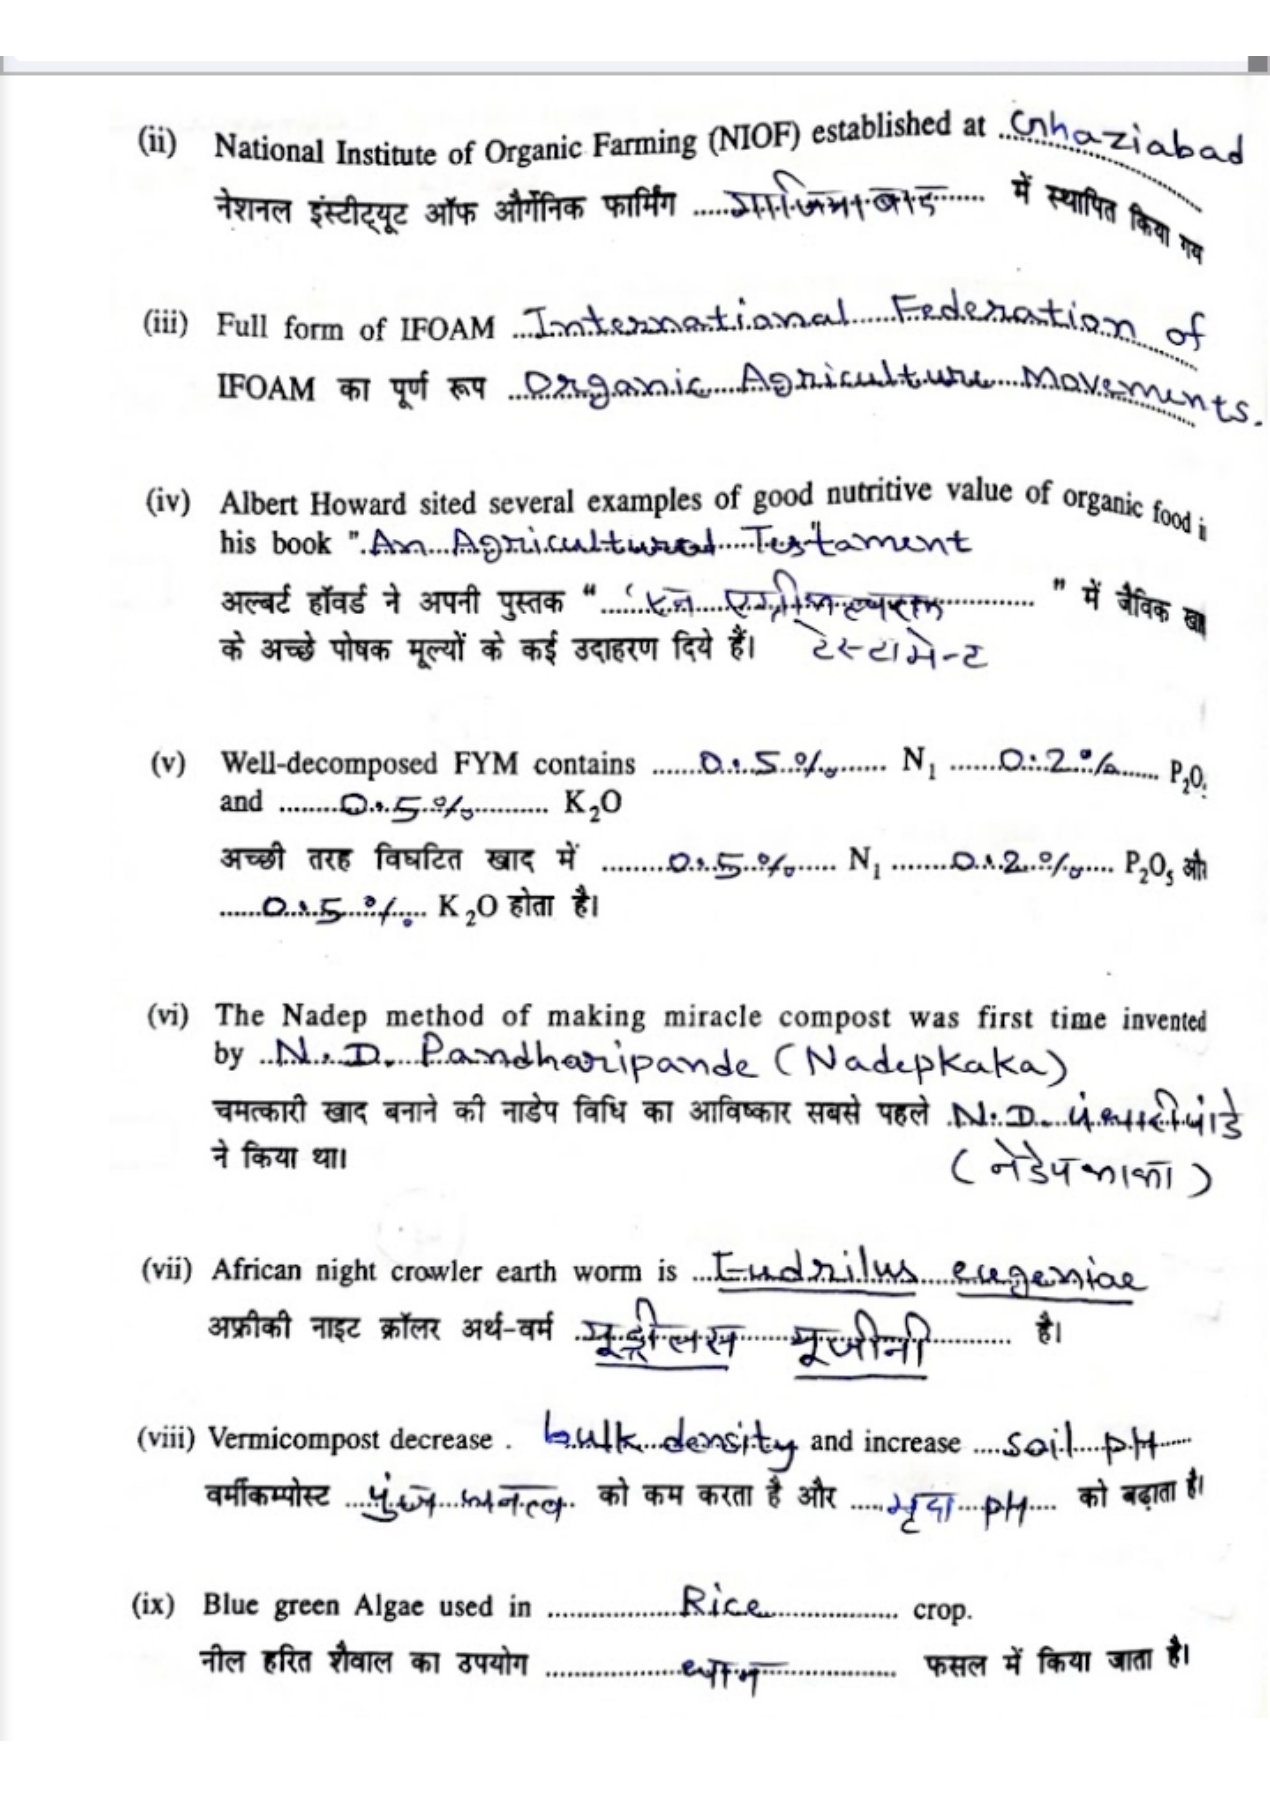 (ii) National Institute of Organic Farming (NIOF) established at ...Ghaziabad
नेशनल इंस्टीट्यूट ऑफ और्गेनिक फार्मिंग .....गाजियाबाद...... में स्थापित किया गय
(iii) Full form of IFOAM ...International Federation of
IFOAM का पूर्ण रूप ...Organic Agriculture Movements.
(iv) Albert Howard sited several examples of good nutritive value of organic food i
his book "An Agricultural Testament
अल्बर्ट हॉवर्ड ने अपनी पुस्तक "...एन एग्रीकल्चरल............" में जैविक खा
के अच्छे पोषक मूल्यों के कई उदाहरण दिये हैं। टेस्टामेन्ट
(v) Well-decomposed FYM contains ......0.5%...... N₁ ......0.2%...... P₂O
and ........0.5%.......... K₂O
अच्छी तरह विघटित खाद में ........0.5%...... N₁ ........0.2%..... P₂O₅ और
......0.5%.... K₂O होता है।
(vi) The Nadep method of making miracle compost was first time invented
by ...N.D. Pandharipande (Nadepkaka)
चमत्कारी खाद बनाने की नाडेप विधि का आविष्कार सबसे पहले .N.D. पंधारीपांडे
ने किया था। (नेडेपकाका)
(vii) African night crowler earth worm is ...Eudrilus eugeniae
अफ्रीकी नाइट क्रॉलर अर्थ-वर्म ..यूड्रीलस यूजीनी........ है।
(viii) Vermicompost decrease . bulk density and increase ....soil pH....
वर्मीकम्पोस्ट ....पुंज घनत्व.. को कम करता है और .....मृदा pH.... को बढ़ाता है।
(ix) Blue green Algae used in ..................Rice................... crop.
नील हरित शैवाल का उपयोग ...................धान................... फसल में किया जाता है।